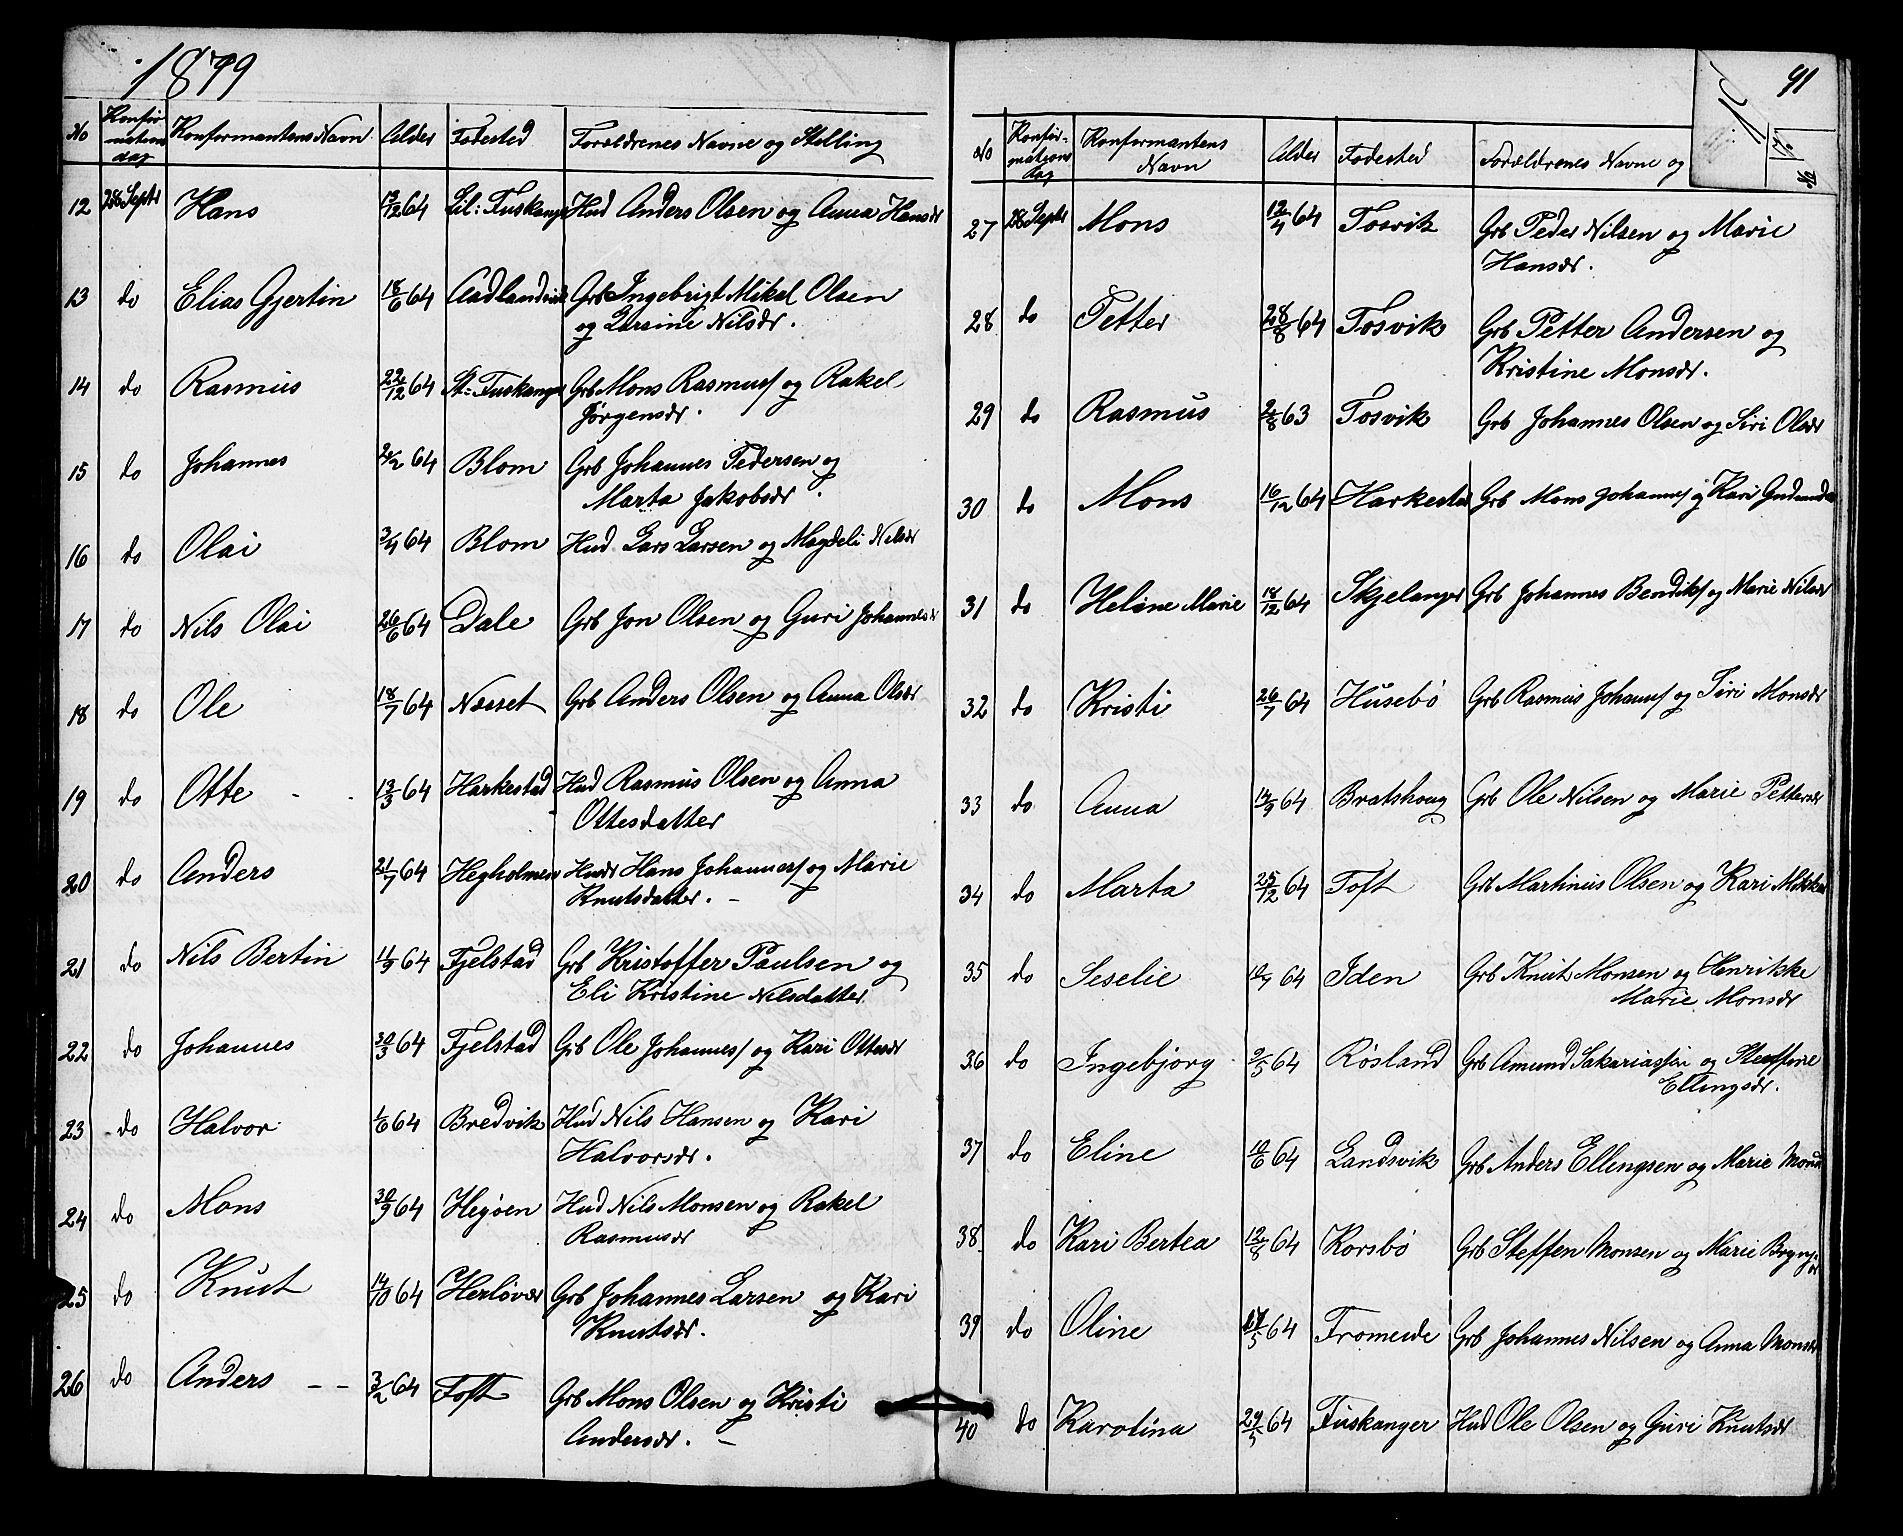 1879
No Konfirmations dag Konfirmantens Navn Alder Fødested Forældrenes Navne og Stilling
12 28 Septr Hans 13/12 64 Lil: Fuskanger Hud Anders Olsen og Anna Hansdr
13 do Elias Gjertin 18/6 64 Aadlandsvik Grb Ingebrigt Mikal Olsen
og Larsine Nilsdr.
14 do Rasmus 22/12 64 St: Fuskanger Grb Mons Rasmuss og Rakel
Jørgensdr.
15 do Johannes 64 Blom Grb Johannes Pedersen og
Marta Jakobsdr.
16 do Olai 3/4 64 Blom Hud Lars Larsen og Magdeli Nilsdr
17 do Nils Olai 26/6 64 Dale Grb Jon Olsen og Guri Johannesdr
18 do Ole 18/7 64 Nesset Grb Anders Olsen og Anna Olsdr
19 do Otte - - 13/3 64 Harkestad Hud Rasmus Olsen og Anna
Ottesdatter
20 do Anders 21/7 64 Hegholmen Hans Johanness og Marie
Knutsdatter. -
21 do Nils Bertin 11/9 64 Fjelstad Grb Kristoffer Paulsen og
Eli Kristine Nilsdatter.
22 do Johannes 30/3 64 Fjelstad Grb Ole Johanness og Kari Ottesdr
23 do Halvor 1/6 64 Bredvik Hud Nils Hansen og Kari
Halvorsdr.
24 do Mons 30/9 64 Hegøen Hud Nils Monsen og Rakel
Rasmusdr
25 do Knut 14/10 64 Herløvær Grb Johannes Larsen og Kari
Knutsdr.
26 do Anders - - 3/2 64 Toft Grb Mons Olsen og Kristi
Andersdr. -
91
No Konfirmations dag Konfirmantens Navn Alder Fødested Forældrenes Navne og
27 28 Septr Mons 12/4 64 Tosvik Grb Peder Nilsen og Marie
Hansdr.
28 do Petter 28/8 64 Tosvik Grb Petter Andersen og
Kristine Monsdr.
29 do Rasmus 2/8 63 Tosvik Grb Johannes Olsen og Siri Olsdr
30 do Mons 16/12 64 Harkestad Grb Mons Johannes og Kari Gudmundsdr
31 do Heline Marie 18/12 64 Skjelanger Grb Johannes Bendiks og Marie Nilsdr
32 do Kristi 26/7 64 Husebø Grb Rasmus Johanns og Siri Monsdr
33 do Anna 14/9 64 Bratshoug Grb Ole Nilsen og Marie Pettersdr
34 do Marta 25/12 64 Toft Grb Martinus Olsen og Kari
35 do Seselie 64 Iden Grb Knut Monsen og Henrikke
Marie Monsdr
36 do Ingebjørg 9/5 64 Røsland Grb Amund Sakariassen og Steffine
Ellingsdr.
37 do Eline 10/6 64 Landsvik Grb Anders Ellengsen og Marie Monsdr
38 do Kari Bertea 12/8 64 Korsbø Grb Steffen Monsen og Marie
39 do Oline 17/5 64 Fromreide Grb Johannes Nilsen og Anna Monsdr
40 do Karolina 29/5 64 Fuskanger Hud Ole Olsen og Guri Knutsdr